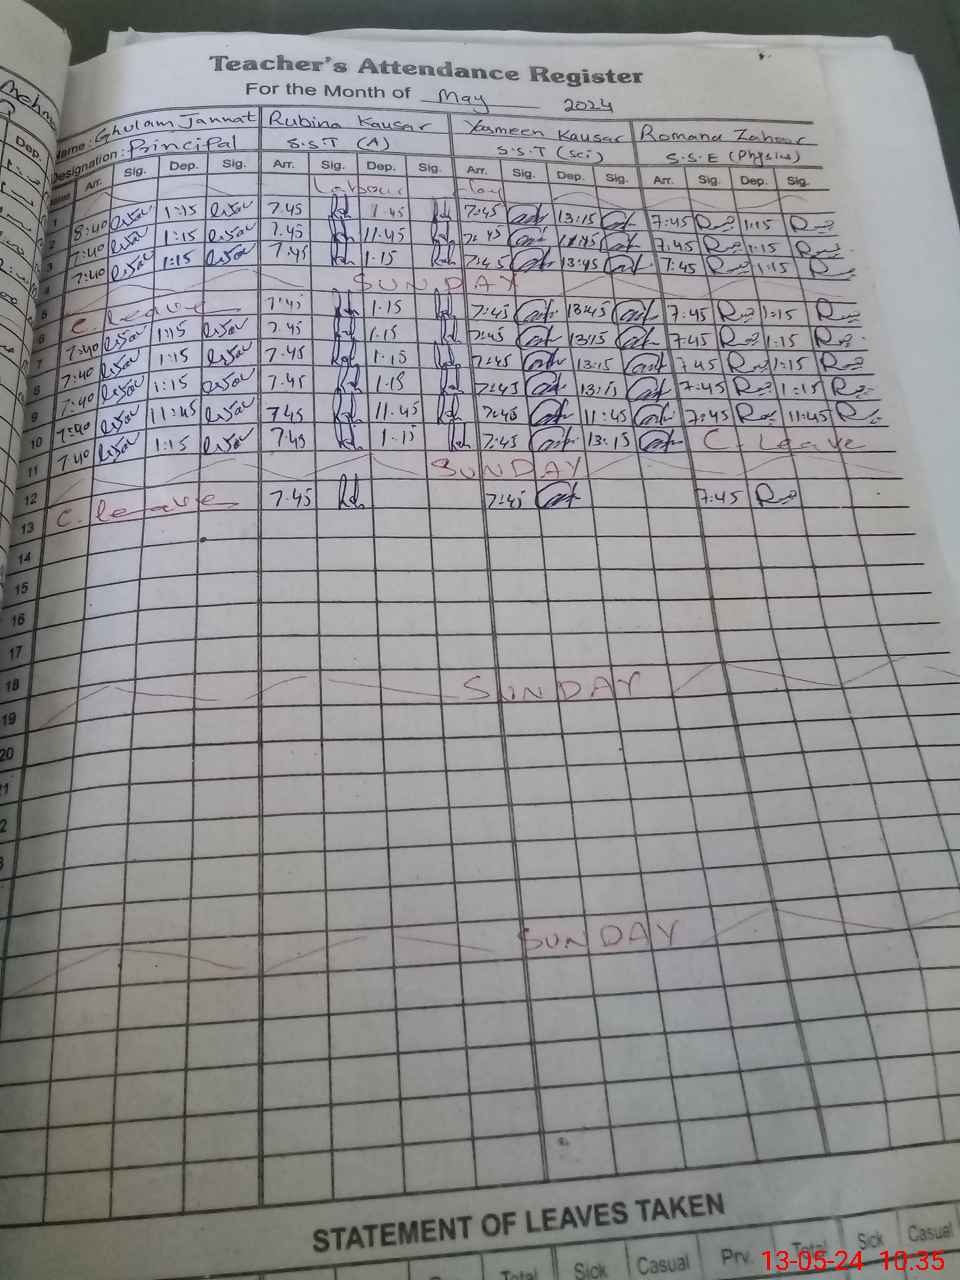 Teacher's Attendance Register
For the Month of May 2024
Name: Ghulam Jannat Rubina Kausar Yasmeen Kausar Romana Zahoor
Designation: Principal S.S.T (A) S.S.T (Sci) S.S.E (Physics)
Arr. Sig. Dep. Sig. Arr. Sig. Dep. Sig. Arr. Sig. Dep. Sig. Arr. Sig. Dep. Sig.
1 Labour Day
2 8:40 1:15 7.45 1.45 7:45 13:15 7:45 1:15
3 7:40 1:15 7.45 11.45 7:45 11:45 7.45 1:15
4 7:40 1:15 7.45 1.15 7:45 13:45 7:45 1:15
5 SUNDAY
6 C. leave 7:45 1.15 7:45 13:45 7:45 1:15
7 7:40 1:15 7.45 1.15 7:45 13:15 7:45 1:15
8 7:40 1:15 7.45 1.15 7:45 13:15 7:45 1:15
9 7:40 1:15 7.45 1.15 7:45 13:15 7:45 1:15
10 7:40 11:45 7.45 11.45 7:45 11:45 7:45 11:45
11 7:40 1:15 7.45 1.15 7:45 13:15 C. Leave
12 SUNDAY
13 C. leave 7.45 7:45 7:45
14
15
16
17
18
19 SUNDAY
20
SUNDAY
STATEMENT OF LEAVES TAKEN
Total Sick Casual Prv. Total Sick Casual
13-05-24 10:35